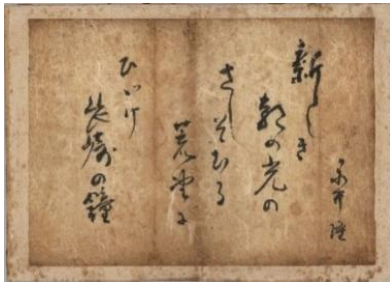 永井隆
新しき
朝の光の
さしそむる
荒野に
ひゞけ
長崎の鐘